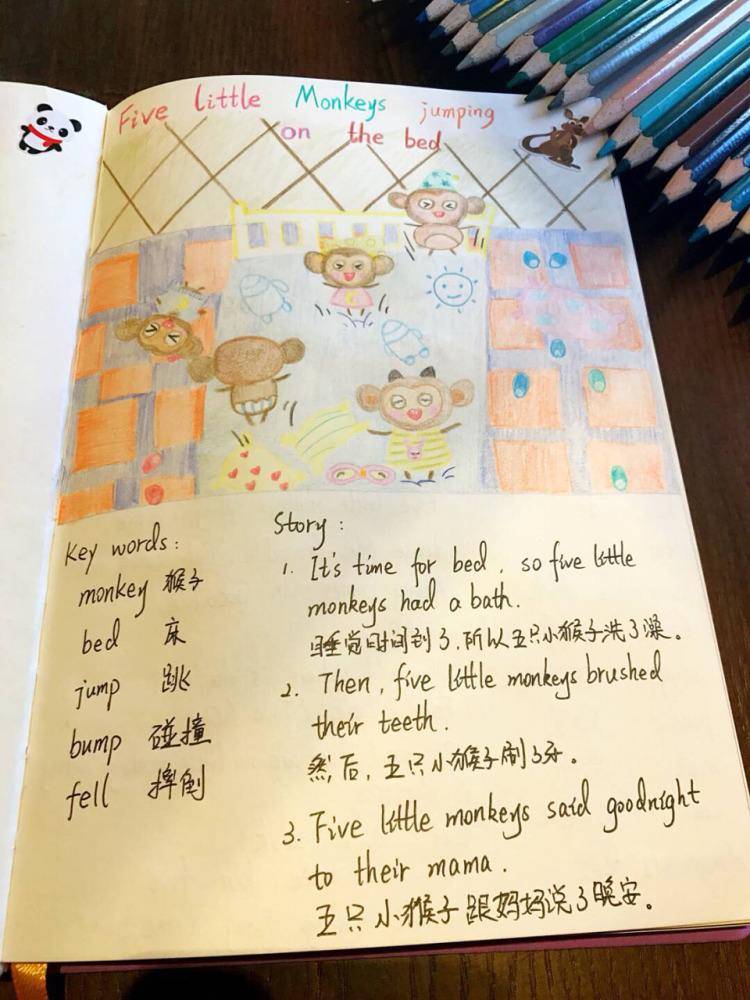 Five little Monkeys jumping
on the bed
Key words:
monkey 猴子
bed 床
jump 跳
bump 碰撞
fell 摔倒
Story:
1. It's time for bed, so five little
monkeys had a bath.
睡觉时间到了,所以五只小猴子洗了澡。
2. Then, five little monkeys brushed
their teeth.
然后,五只小猴子刷了牙。
3. Five little monkeys said goodnight
to their mama.
五只小猴子跟妈妈说了晚安。